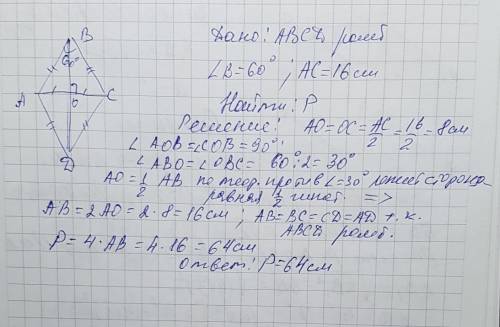 B
60°
A
C
O
D
Дано: ABCD ромб
∠B=60° ; AC=16см
Найти: P
Решение: AO=OC=AC/2=16/2=8см
∠AOB=∠COB=90°
∠ABO=∠OBC= 60°:2=30°
AO=1/2 AB по теор. против ∠=30° лежит сторона
равная 1/2 гипот. =>
AB=2AO=2·8=16см ; AB=BC=CD=AD т.к.
ABCD ромб.
P=4·AB=4·16=64см
Ответ: P=64см